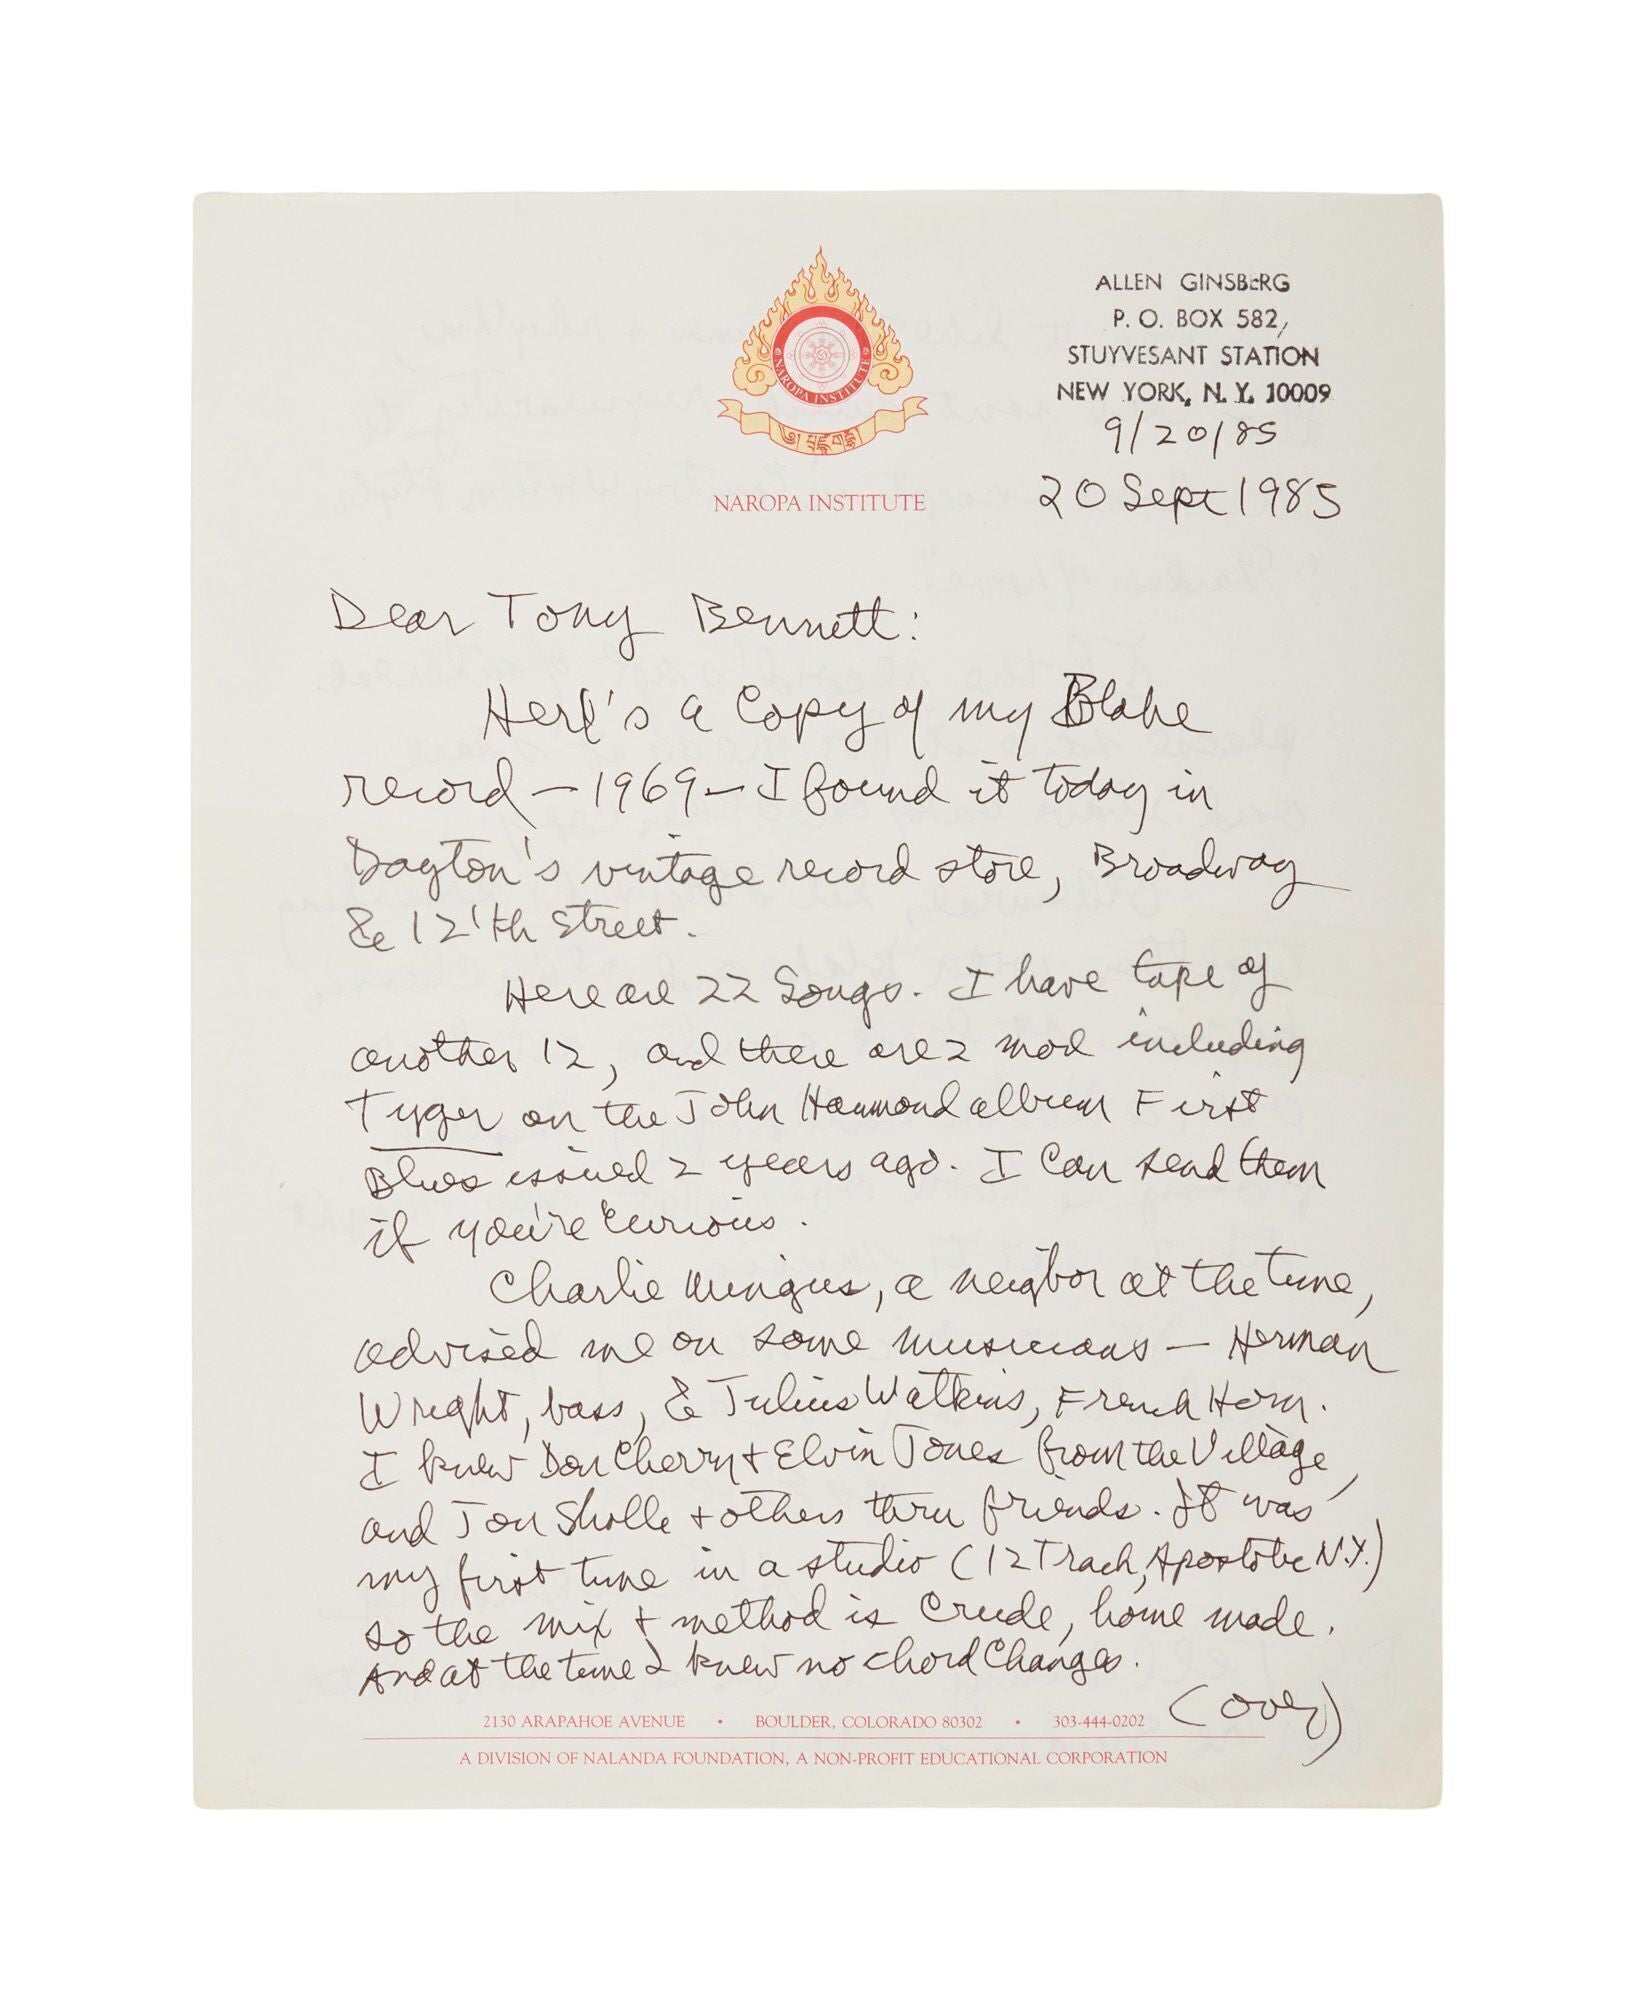 ALLEN GINSBERG
P. O. BOX 582,
STUYVESANT STATION
NEW YORK, N. Y. 10009
9/20/85
20 Sept 1985
NAROPA INSTITUTE
NAROPA INSTITUTE
Dear Tony Bennett:
Here's a Copy of my Blake
record — 1969 — I found it today in
Dayton's vintage record store, Broadway
& 12'th Street.
Here are 22 Songs. I have tape of
another 12, and there are 2 mod including
Tyger on the John Hammond album First
Blues issued 2 years ago. I can send them
if you're curious.
Charlie Mingus, a neighbor at the time,
advised me on some musicians — Herman
Wright, bass, & Julius Watkins, French Horn.
I knew Don Cherry + Elvin Jones from the Village,
and Jon Sholle + others thru friends. It was
my first time in a studio (12 Track, Apostolic N.Y.)
so the mix + method is crude, home made.
And at the time I knew no chord Changes.
(over)
2130 ARAPAHOE AVENUE • BOULDER, COLORADO 80302 • 303-444-0202
A DIVISION OF NALANDA FOUNDATION, A NON-PROFIT EDUCATIONAL CORPORATION